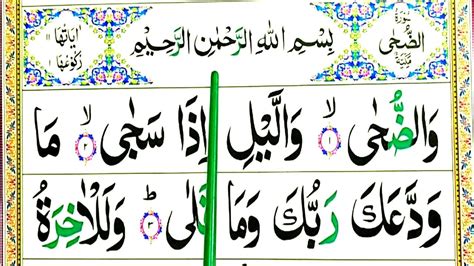 سورة الضحى مكية
بِسْمِ اللهِ الرَّحْمٰنِ الرَّحِيْمِ
اياتها
ركوعها
وَالضُّحٰى ۙ ١ وَالَّيْلِ اِذَا سَجٰى ۙ ٢ مَا
وَدَّعَكَ رَبُّكَ وَمَا قَلٰى ؕ ٣ وَلَلْاٰخِرَةُ